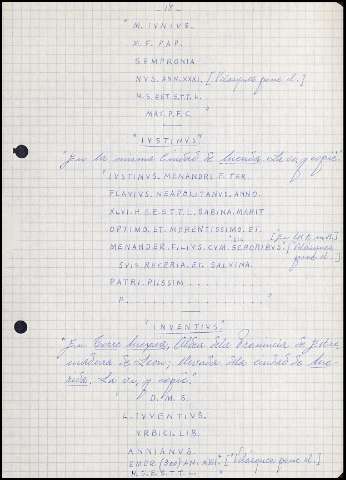 - 18 -
" M. IVNIVS.
X. F. PAP.
SEMPRONIA
NVS. ANN. XXXI. [Velazquez pone el.]
H. S. EST. S. T. T. L.
MAT. P. F. C. "
"IVSTINVS"
"En la misma Ciudad de Merida, la vi, y copié".
"IVSTINVS. MENANDRI. F. TER.
FLAVIVS. NEAPOLITANVS. ANNO.
XLVI. H. S. E. S. T. T. L. SABINA. MARIT
OPTIMO. ET. MERENTISSIMO. ET.
MENANDER. FILIVS. CVM. SORORIBVS. [Velazquez
pone el.]
SVIS. RECERIA. ET. SALVINA.
PATRI. PIISSIM . . . . . .
P. . . . . . . . . . . . . . . . "
"INVENTIVS."
"En Torre mexeya, Aldea dela Provincia de Estre
madura de Leon, llevada dela ciudad de Me
rida. La vi, y copié."
" D. M. S.
L. IVVENTIVS.
VRBICI. LIB.
ANNIANVS.
EMER (300) AN. XIII. " ["Velazquez pone el.]
H. S. E. S. T. T. L. "